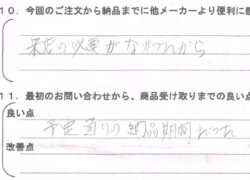 10．今回のご注文から納品までに他メーカーより便利に感
来店の必要がなかったから
11．最初のお問い合わせから、商品受け取りまでの良い点
良い点
予定通りの納品期間だった
改善点